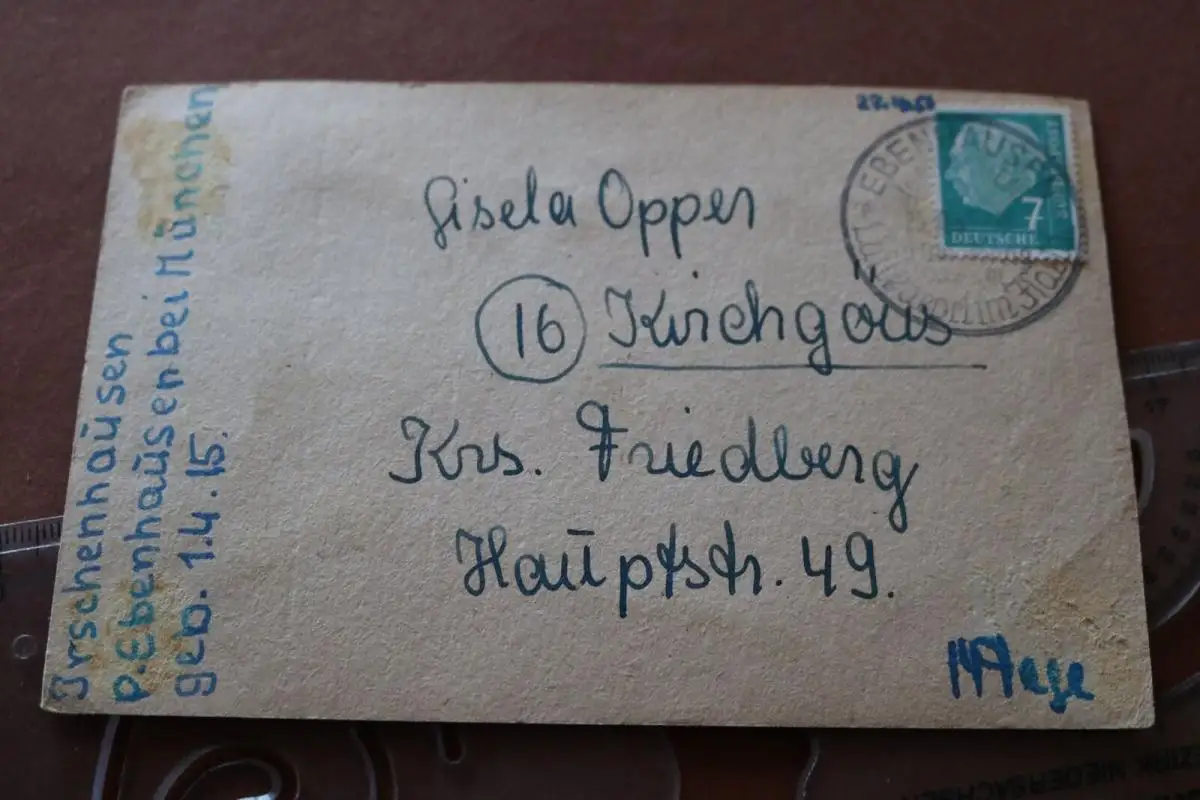 Irschenhausen
p. Ebenhausen bei München
geb. 1.4.15.
EBENHAUSEN
7
DEUTSCHE
POST
Gisela Opper
16 Kirchgöns
Krs. Friedberg
Hauptstr. 49.
NIEDERSACHSEN